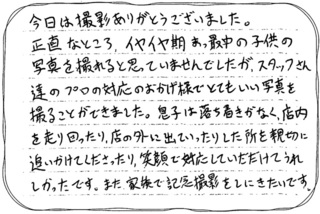 今日は撮影ありがとうございました。
正直なところ、イヤイヤ期まっ最中の子供の
写真を撮れると思っていませんでしたが、スタッフさん
達のプロの対応のおかげ様でとてもいい写真を
撮ることができました。息子は落ち着きがなく、店内
を走り回ったり、店の外に出ていったりした所を親切に
追いかけてしださったり、笑顔で対応していただけてうれ
しかったです。また家族で記念撮影をしにきたいです。